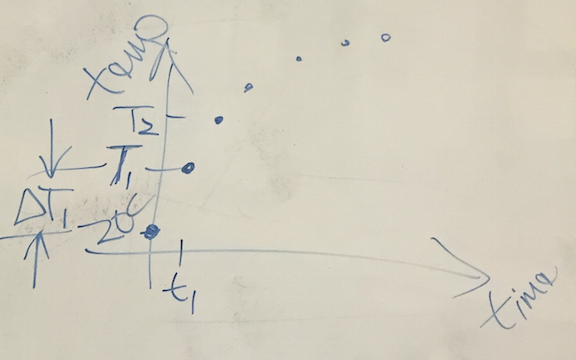 temp
T₂
T₁
ΔT₁
20C
t₁
time